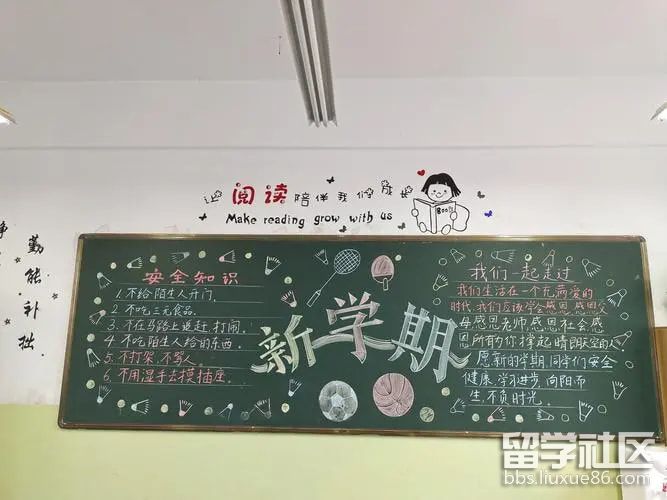 让阅读陪伴我们成长
Make reading grow with us
BOOK
勤能补拙
安全知识
1.不给陌生人开门.
2.不吃三无食品.
3.不在马路上追赶、打闹.
4.不吃陌生人给的东西.
5.不打架、不骂人.
6.不用湿手去摸插座.
新学期
我们一起走过
我们生活在一个充满爱的
时代.我们应该学会感恩.感恩父
母感恩老师感恩社会感
恩所有的你撑起晴朗天空的人.
愿新的学期,同学们安全
健康,学习进步,向阳而
生,不负时光.
留学社区
bbs.liuxue86.com